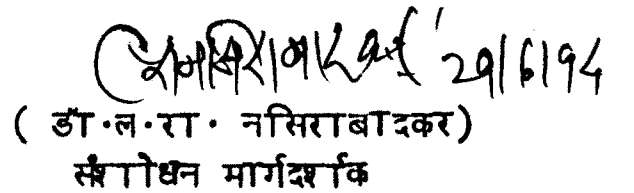 29/6/94
( डॉ.ल.रा. नसिराबादकर)
संशोधन मार्गदर्शक